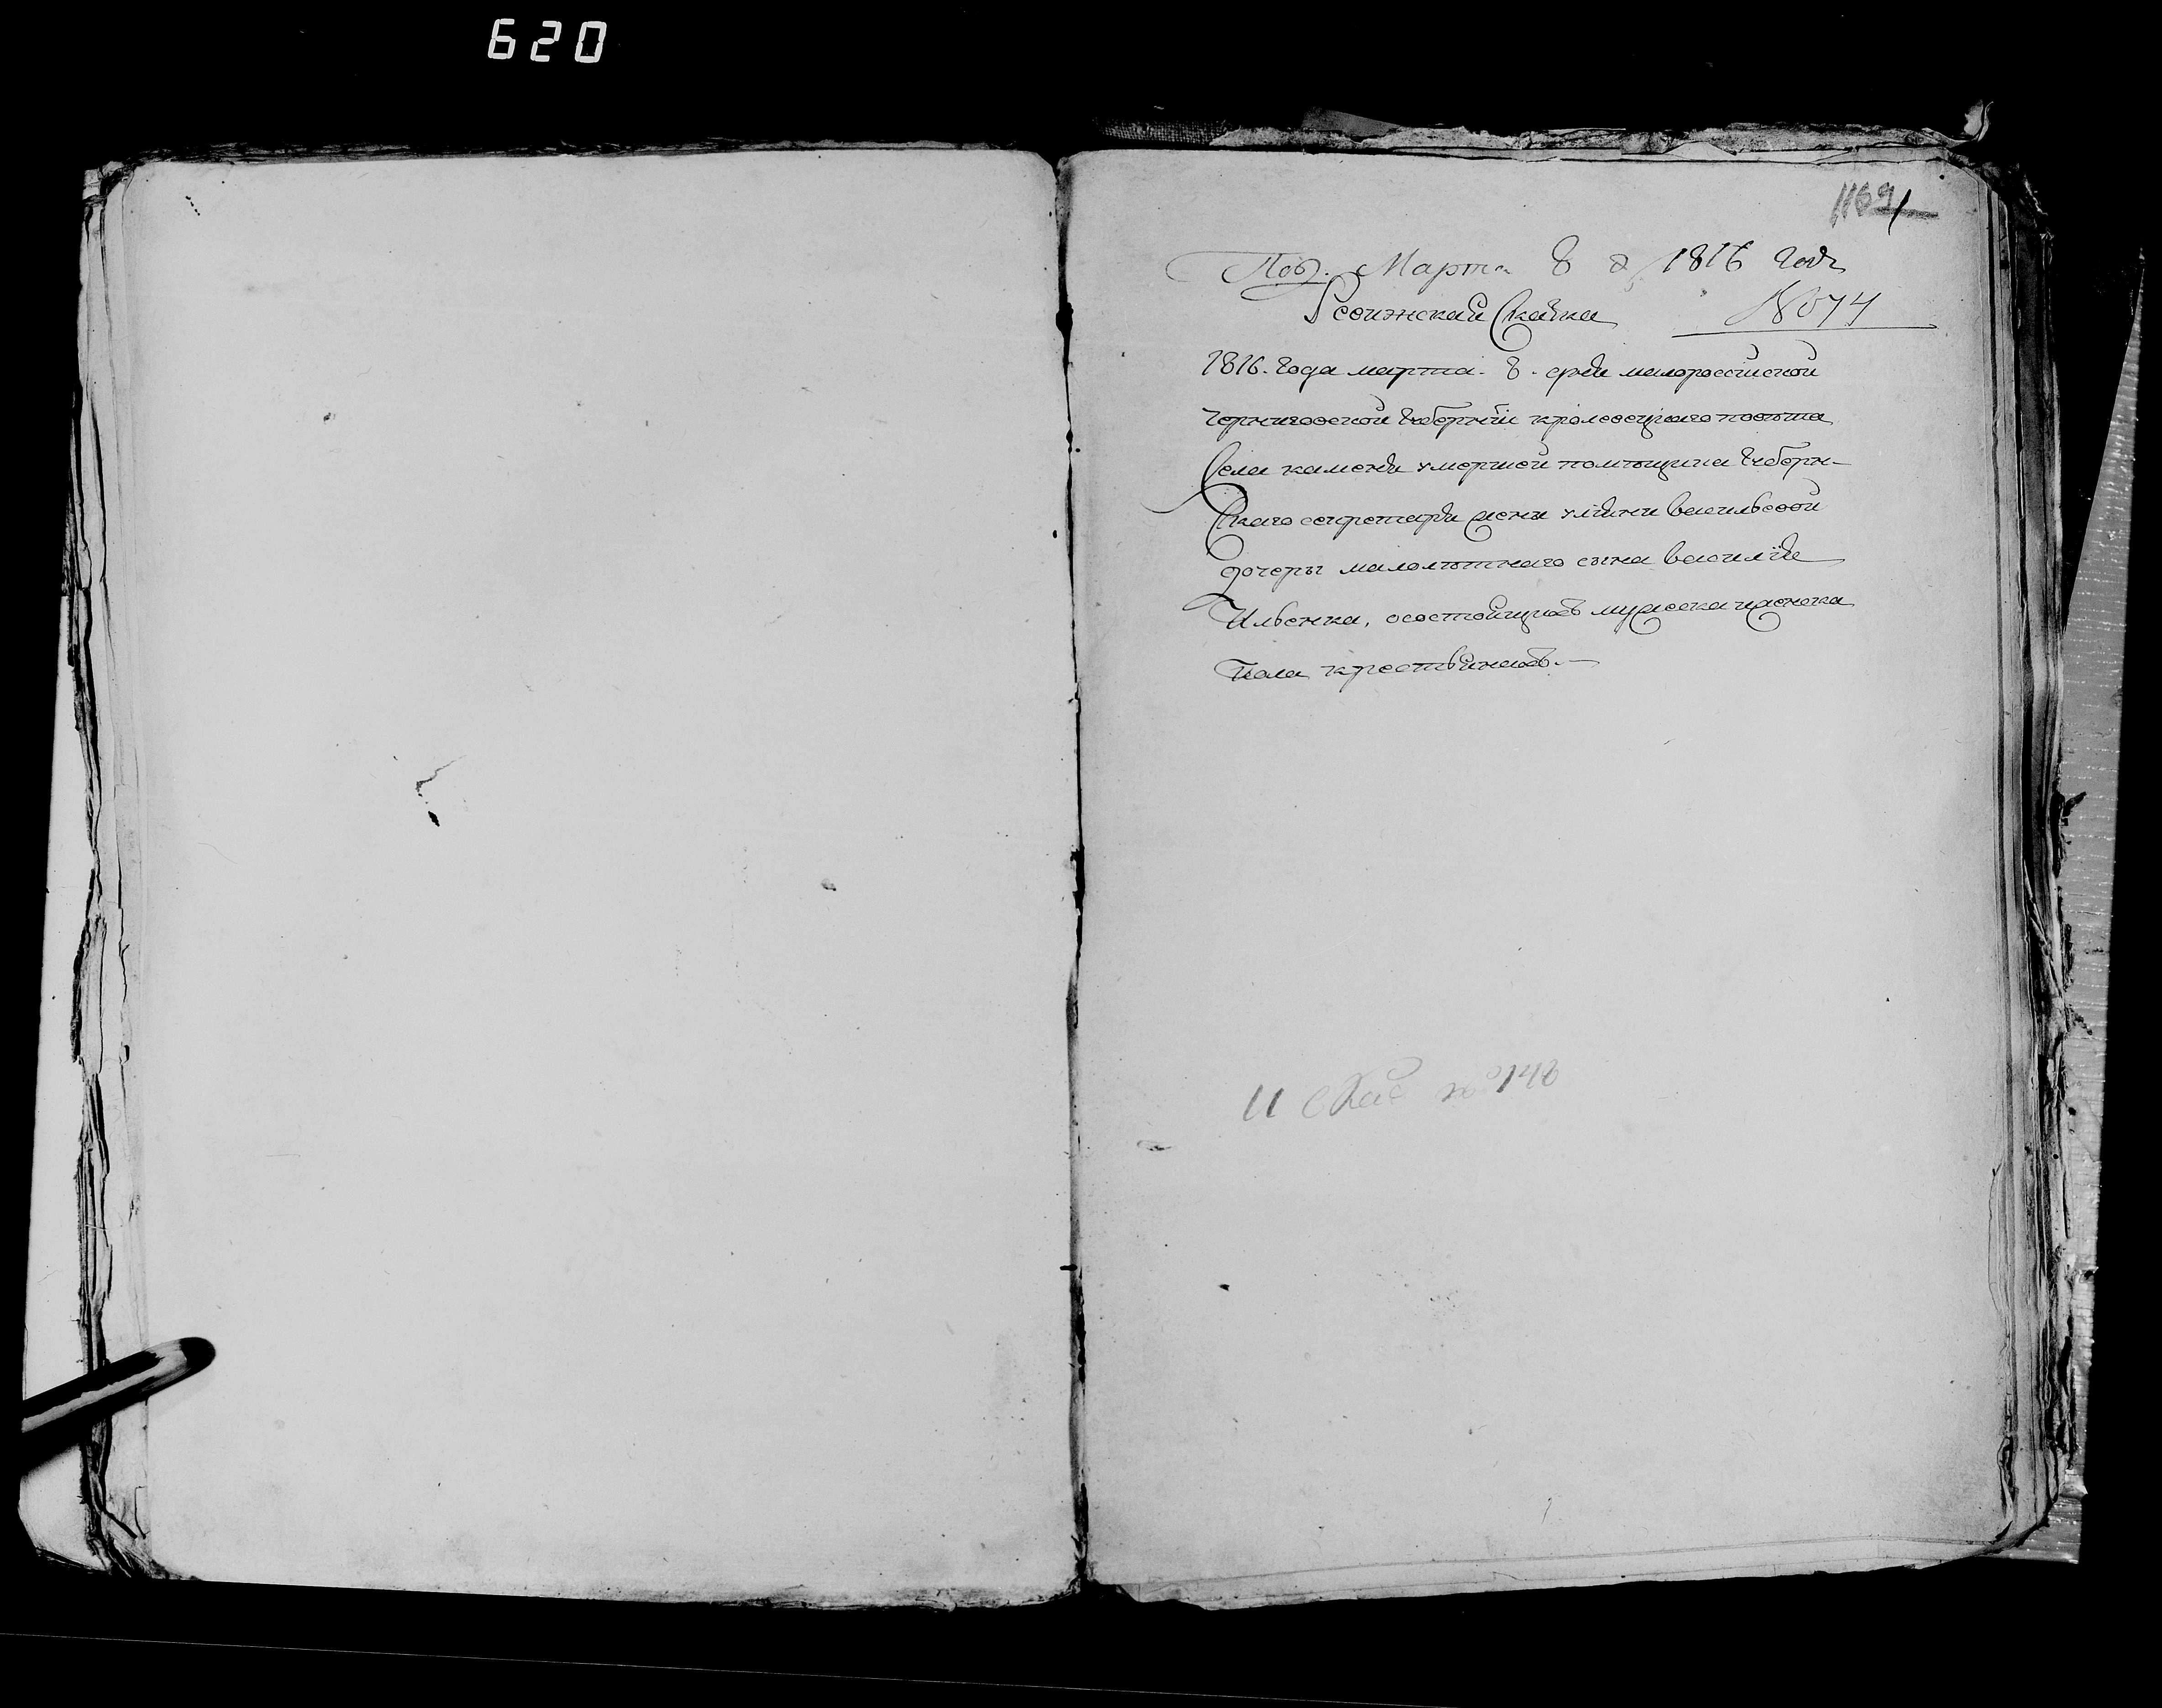 620
1169
Под. Марта 8 д 1816 Года
Ревизская Сказка №74
1816. Года марта. 8. дня малороссийской
черниговской Губернии кролевецкаго повета
Села каменя умершей помещица Губерн-
Скаго секретаря жены улияни васильевой
дочеры малолетнаго сына василия
Ильенка, осостоящих мужеска иженска
Пола крестьянах.
11 Сказ №148